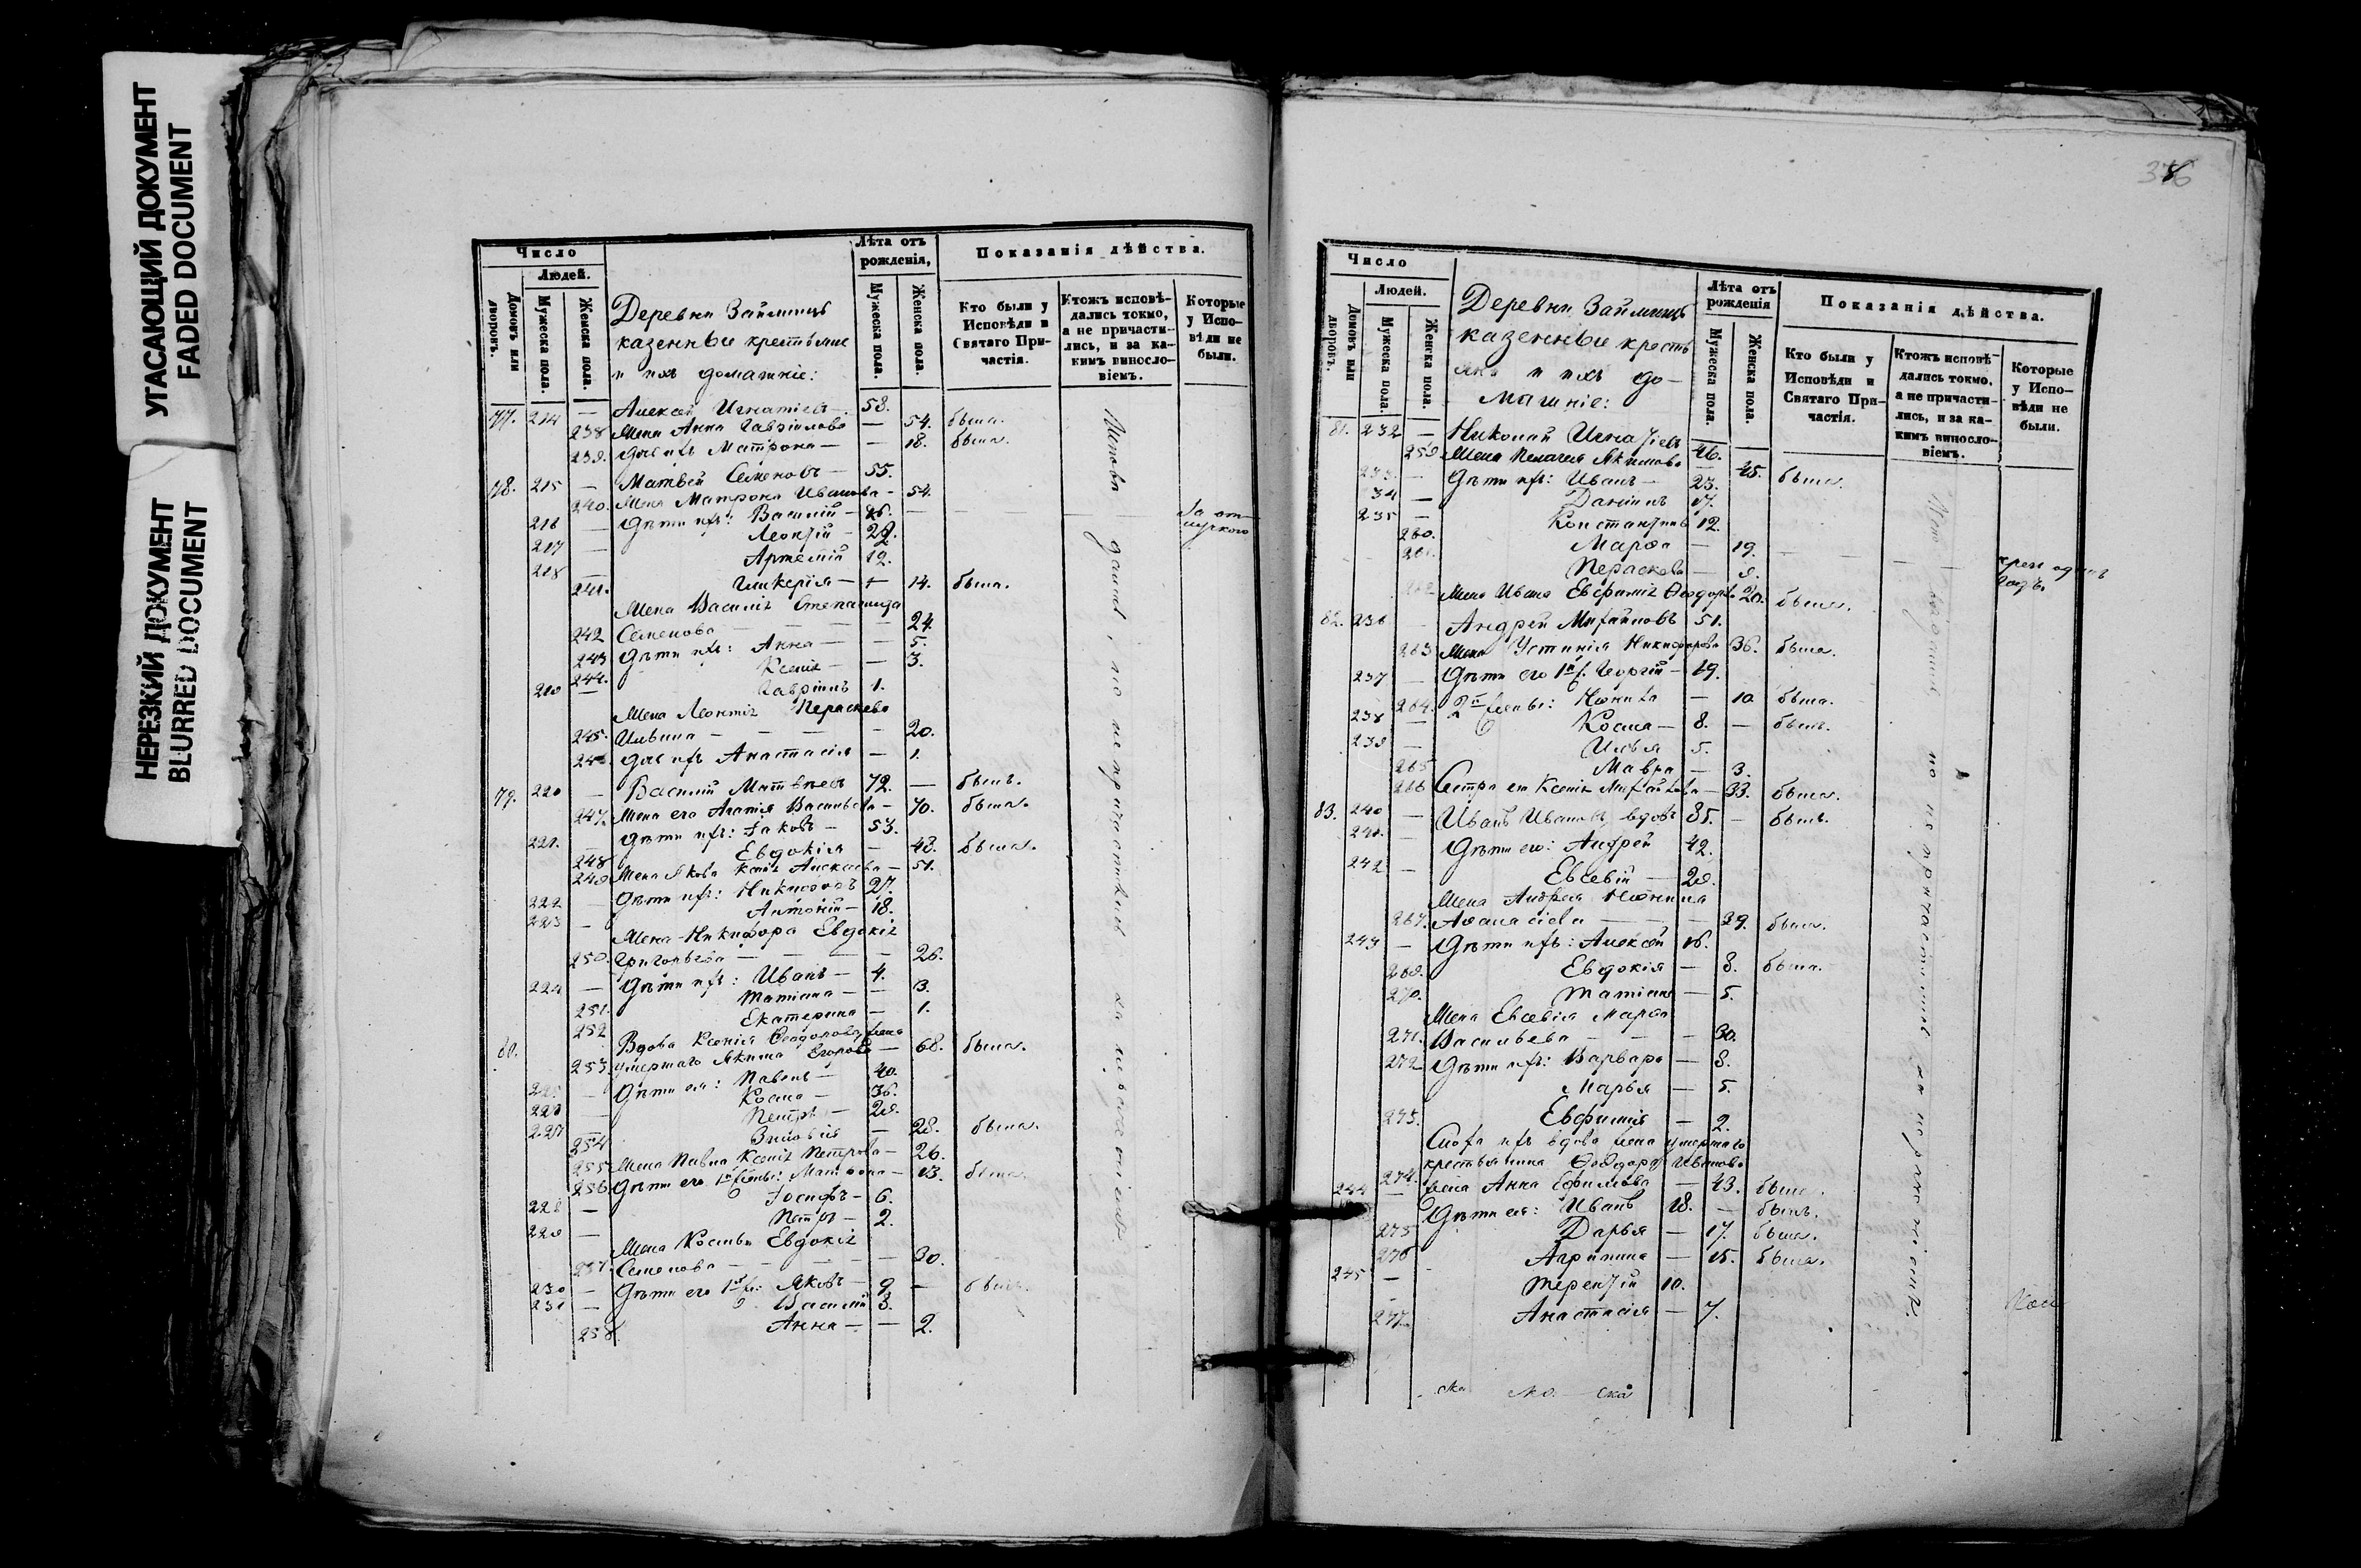 УГАСАЮЩИЙ ДОКУМЕНТ
FADED DOCUMENT
НЕРЕЗКИЙ ДОКУМЕНТ
BLURRED DOCUMENT
Число
Людей.
Домовъ или дворовъ.
Мужеска пола.
Женска пола.
Деревни Займищъ
казенные крестьяне
и ихъ домашніе:
Лѣта отъ рожденія,
Мужеска пола.
Женска пола.
Показанія дѣйства.
Кто были у Исповѣди и Святаго Причастія.
Ктожъ исповѣдались токмо, а не причастились, и за какимъ винословіемъ.
Которые у Исповѣди не были.
77. 214 — Алексѣй Игнатіевъ — 58.
238 Жена Анна Гавріилова — 54. была.
239. Дочь ихъ Матрона — — 18. была.
78. 215 — Матвѣй Семеновъ — 55.
240. Жена Матрона Иванова — 54.
216 — Дѣти ихъ: Василій —
217 — Леонтій — 22.
218 — Артемій 19.
241. Гликерія — 14. была.
Жена Василія Степанида
242 Семенова — 24.
243 Дѣти ихъ: Анна — — 5.
244. Ксенія — — 3.
219 — Гавріилъ 1.
Жена Леонтія Параскева
245. Ильина — — — 20.
246. Дочь ихъ Анастасія — 1.
79. 220 — Василій Матвѣевъ 72. — былъ.
247. Жена его Агапія Васильева — 70. была.
221. — Дѣти ихъ: Іаковъ — 53.
248 Евдокія — 43. была.
249 Жена Якова Ксенія Алексѣева — 51.
222 — Дѣти ихъ: Никифоръ 27.
223 — Антоній — 18.
Жена Никифора Евдокія
250. Григорьева — — — 26.
224 — Дѣти ихъ: Иванъ — 4.
251. Татіана — — 3.
252 Екатерина — 1.
80. Вдова Ксенія Ѳеодорова, жена
253. умершаго Якима Егорова — 68. была.
225 — Дѣти ея: Павелъ — 40.
226 — Косма — 36.
227 — Петръ — 29.
254 Зиновія — 28. была.
255 Жена Павла Ксенія Петрова — 26.
256 Дѣти его 1й жены: Матрона — 13. была.
228 — Іосифъ — 6.
229 — Петръ — 2.
Жена Космы Евдокія
257. Семенова — — — 30.
230 — Дѣти его 1й ж: Яковъ — 9. — былъ.
231 — Василій 3.
258 Анна — — 2.
376
Число
Людей.
Домовъ или дворовъ.
Мужеска пола.
Женска пола.
Деревни Займищъ
казенные кресть
яне и ихъ до-
машніе:
Лѣта отъ рожденія
Мужеска пола.
Женска пола.
Показанія дѣйства.
Кто были у Исповѣди и Святаго Причастія.
Ктожъ исповѣдались токмо, а не причастились, и за какимъ винословіемъ.
Которые у Исповѣди не были.
81. 232 — Николай Игнатіевъ 46.
259 Жена Пелагея Якимова — 45. была.
233. — Дѣти ихъ: Иванъ — 23.
34 — Даніилъ 17.
235 — Константинъ 12.
260. Марѳа — 19.
261. Параскева — 9.
Жена Ивана Евфимія Ѳеодорова 20. была.
82. 236 Андрей Михайловъ 51.
263 Жена Устинія Никифорова 36. была.
237 — Дѣти его 1й ж. Георгій — 19.
264. 2й жены: — 10 была.
238 — Косма — 8. — былъ.
239 — Илья 5.
265 Мавра — 3.
266 Сестра его Ксенія Михайлова — 33. была.
83. 240 — Иванъ Ивановъ вдовъ 85. — былъ.
241. — Дѣти его: Андрей 42.
242 — Евсевій — 29.
Жена Андрея
267. Аѳанасіева — — 39. была.
243 — Дѣти ихъ: Алексѣй 16.
269. Евдокія — 8. была.
270. Татіана — 5.
Жена Евсевія Марѳа
271. Васильева — — — 30.
272 Дѣти ихъ: Варвара — 8.
Марья — 5.
273. Евфимія — 2.
Сноха ихъ вдова жена умершаго
крестьянина Ѳеодора Иванова
274. жена Анна Ефимова — 43. была.
244 — Дѣти ея: Иванъ 18. — былъ.
275 Дарья — 17. была.
276 Агрипина — 15. была.
245 — Терентій 10.
277. Анастасія — 7.